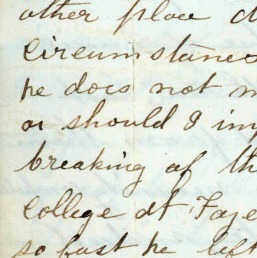 other place d
circumstances
he does not m
or should I im
breaking of th
College at Faye
so fast he left